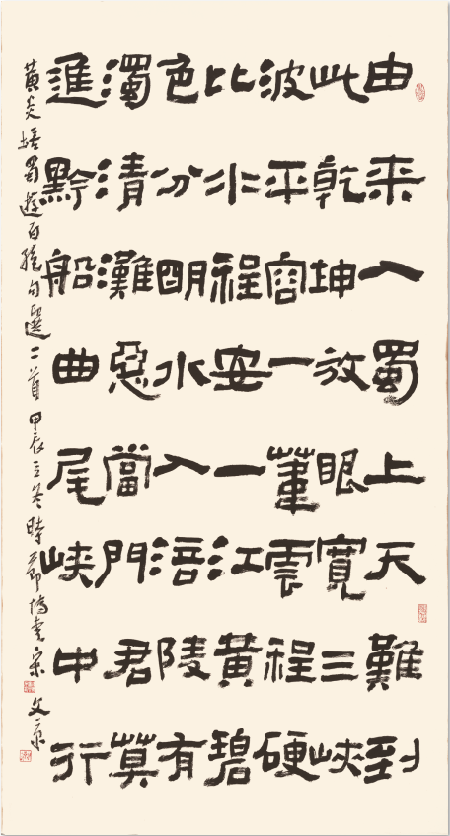 由来入蜀上天難到
此乾坤放眼寬三峽
波平容一葦雲程硬
比水程安一江黄碧
色分明水入涪陵有
濁清灘惡當門君莫
進黔船曲尾峽中行
黄炎培蜀遊百絶句選二首 甲辰立冬時節 宋文京